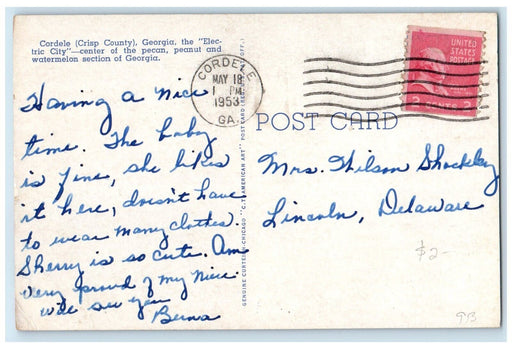 Cordele (Crisp County), Georgia, the "Elec-
tric City"—center of the pecan, peanut and
watermelon section of Georgia.
CORDELE
MAY 18
1 PM
1953
GA.
UNITED
STATES
POSTAGE
2 CENTS 2
POST CARD
Having a nice
time. The baby
is fine, she likes
it here, doesn't have
to wear many clothes.
Sherry is so cute. Am
very proud of my niece
will see you
Berna
Mrs. Wilson Shockley
Lincoln, Delaware
$2-
GENUINE CURTEICH-CHICAGO "C.T. AMERICAN ART" POST CARD (REG. U.S. PAT. OFF.)